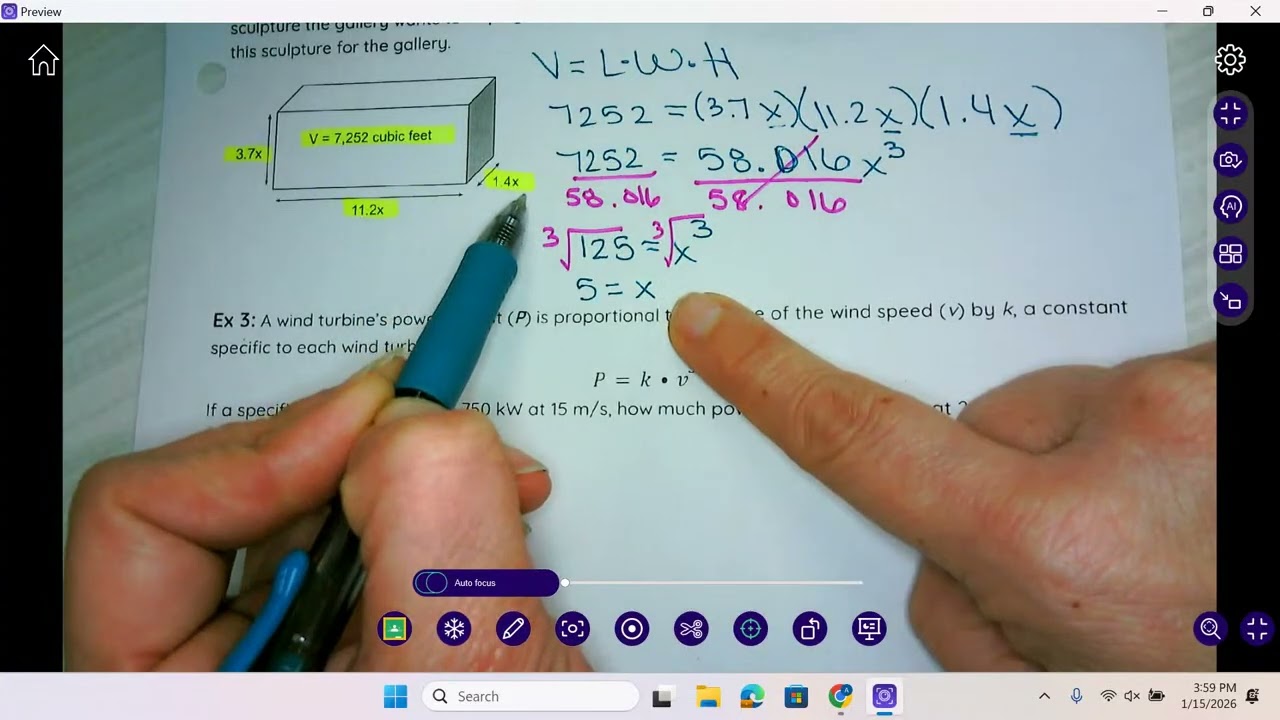 Preview
this sculpture for the gallery.
V = 7,252 cubic feet
3.7x
1.4x
11.2x
V = L·W·H
7252 = (3.7x)(11.2x)(1.4x)
7252 = 58.016x³
58.016 58.016
³√125 = ³√x³
5 = x
Ex 3: A wind turbine's (P) is proportional of the wind speed (v) by k, a constant
specific to each wind
P = k • v
If a 750 kW at 15 m/s, how much at
Auto focus
AI
Search
3:59 PM
1/15/2026